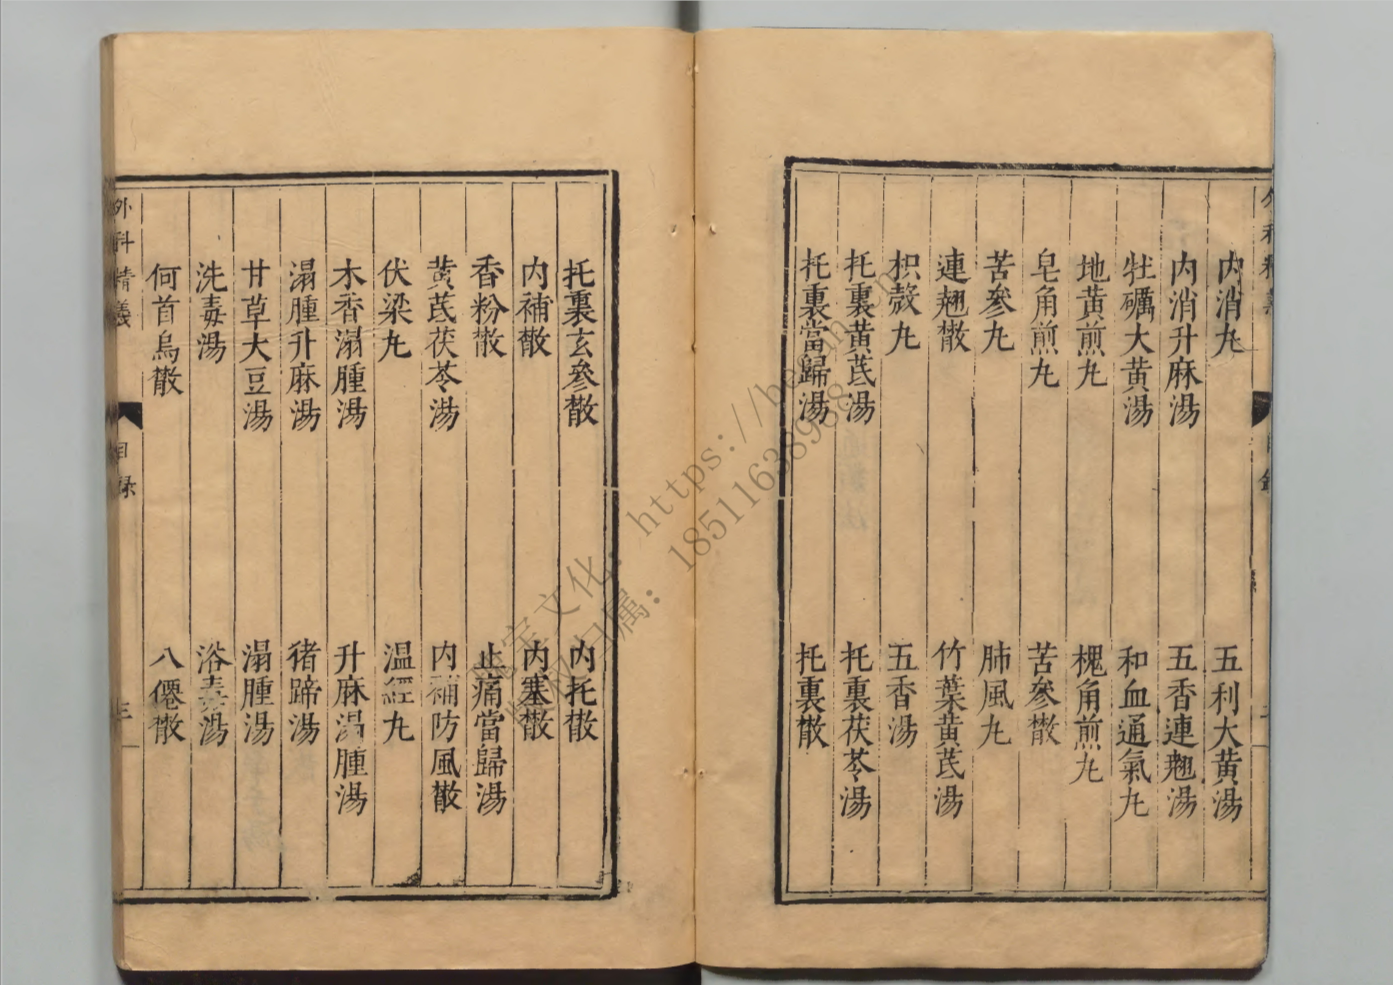 内消丸 五利大黄湯
内消升麻湯 五香連翹湯
牡礪大黄湯 和血通氣丸
地黄煎丸 槐角煎丸
皂角煎丸 苦參散
苦參丸 肺風丸
連翹散 竹葉黄芪湯
枳殼丸 五香湯
托裏黄芪湯 托裏茯苓湯
托裏當歸湯 托裏散
托裏玄參散 内托散
内補散 内塞散
香粉散 止痛當歸湯
黄芪茯苓湯 内補防風散
伏梁丸 温經丸
木香溻腫湯 升麻溻腫湯
溻腫升麻湯 猪蹄湯
甘草大豆湯 溻腫湯
洗毒湯 浴毒湯
何首烏散 八僊散
外科精義 目録 三
文化: https://
归属: 18511638988